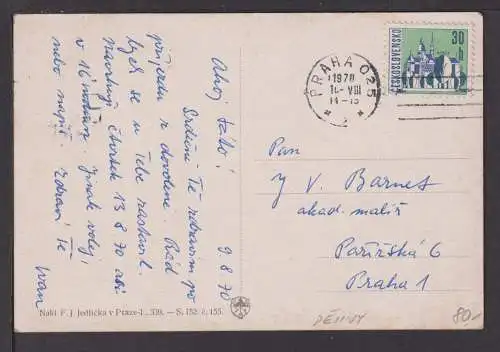 9.8.70
Ahoj
Srdečně Tě zdravím po
příjezdu z dovolené. Rád
bych se u Tebe zastavil.
Navrhuji čtvrtek 13.8.70 asi
v 16 hodin. Jinak volej,
nebo napiš. Zdraví Tě
Ivan
Nakl. F. J. Jedlička v Praze-I., 339. — S. 152. č. 155.
PRAHA 025
1970
10-VIII
14-15
2
ČESKOSLOVENSKO
30
Pan
V. Barnes
akad. malíř
Pařížská 6
Praha 1
80,-